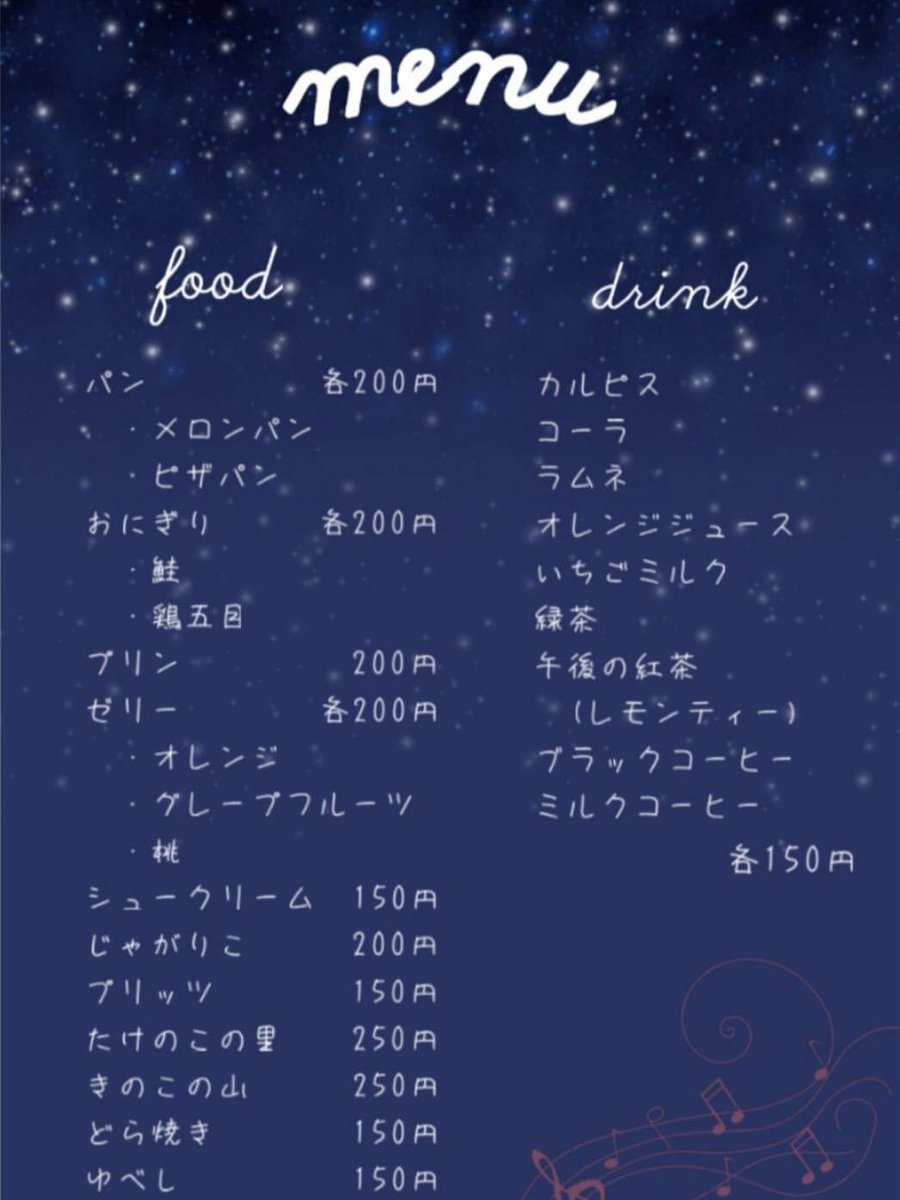 menu
food
パン 各200円
・メロンパン
・ピザパン
おにぎり 各200円
・鮭
・鶏五目
プリン 200円
ゼリー 各200円
・オレンジ
・グレープフルーツ
・桃
シュークリーム 150円
じゃがりこ 200円
プリッツ 150円
たけのこの里 250円
きのこの山 250円
どら焼き 150円
ゆべし 150円
drink
カルピス
コーラ
ラムネ
オレンジジュース
いちごミルク
緑茶
午後の紅茶
(レモンティー)
ブラックコーヒー
ミルクコーヒー
各150円